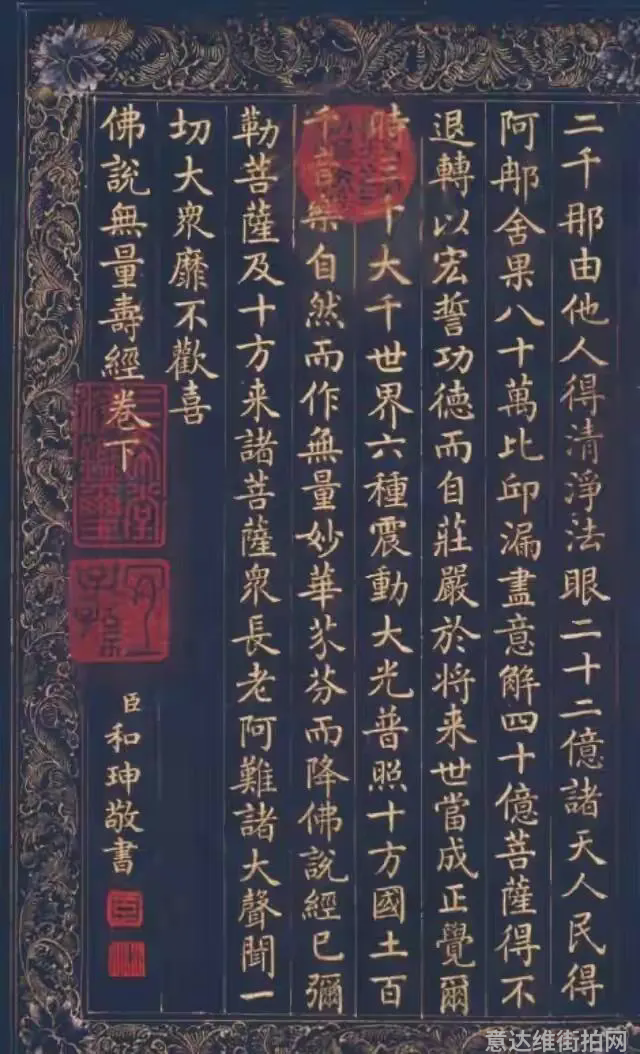 二千那由他人得清淨法眼二十二億諸天人民得
阿那舍果八十萬比邱漏盡意解四十億菩薩得不
退轉以宏誓功德而自莊嚴於将来世當成正覺爾
時三千大千世界六種震動大光普照十方國土百
千音樂自然而作無量妙華芬芬而降佛說經已彌
勒菩薩及十方来諸菩薩衆長老阿難諸大聲聞一
切大衆靡不歡喜
佛說無量壽經卷下
臣和珅敬書
意达维街拍网